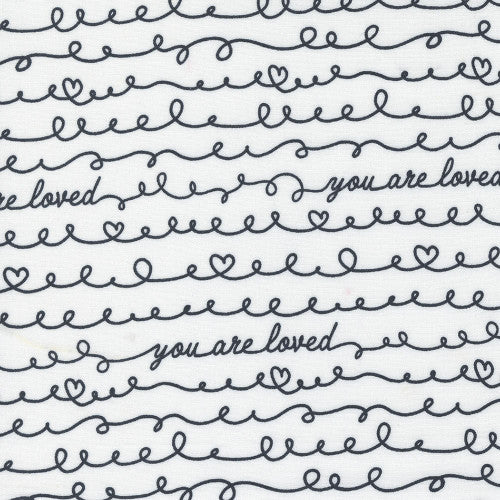 are loved you are loved
you are loved